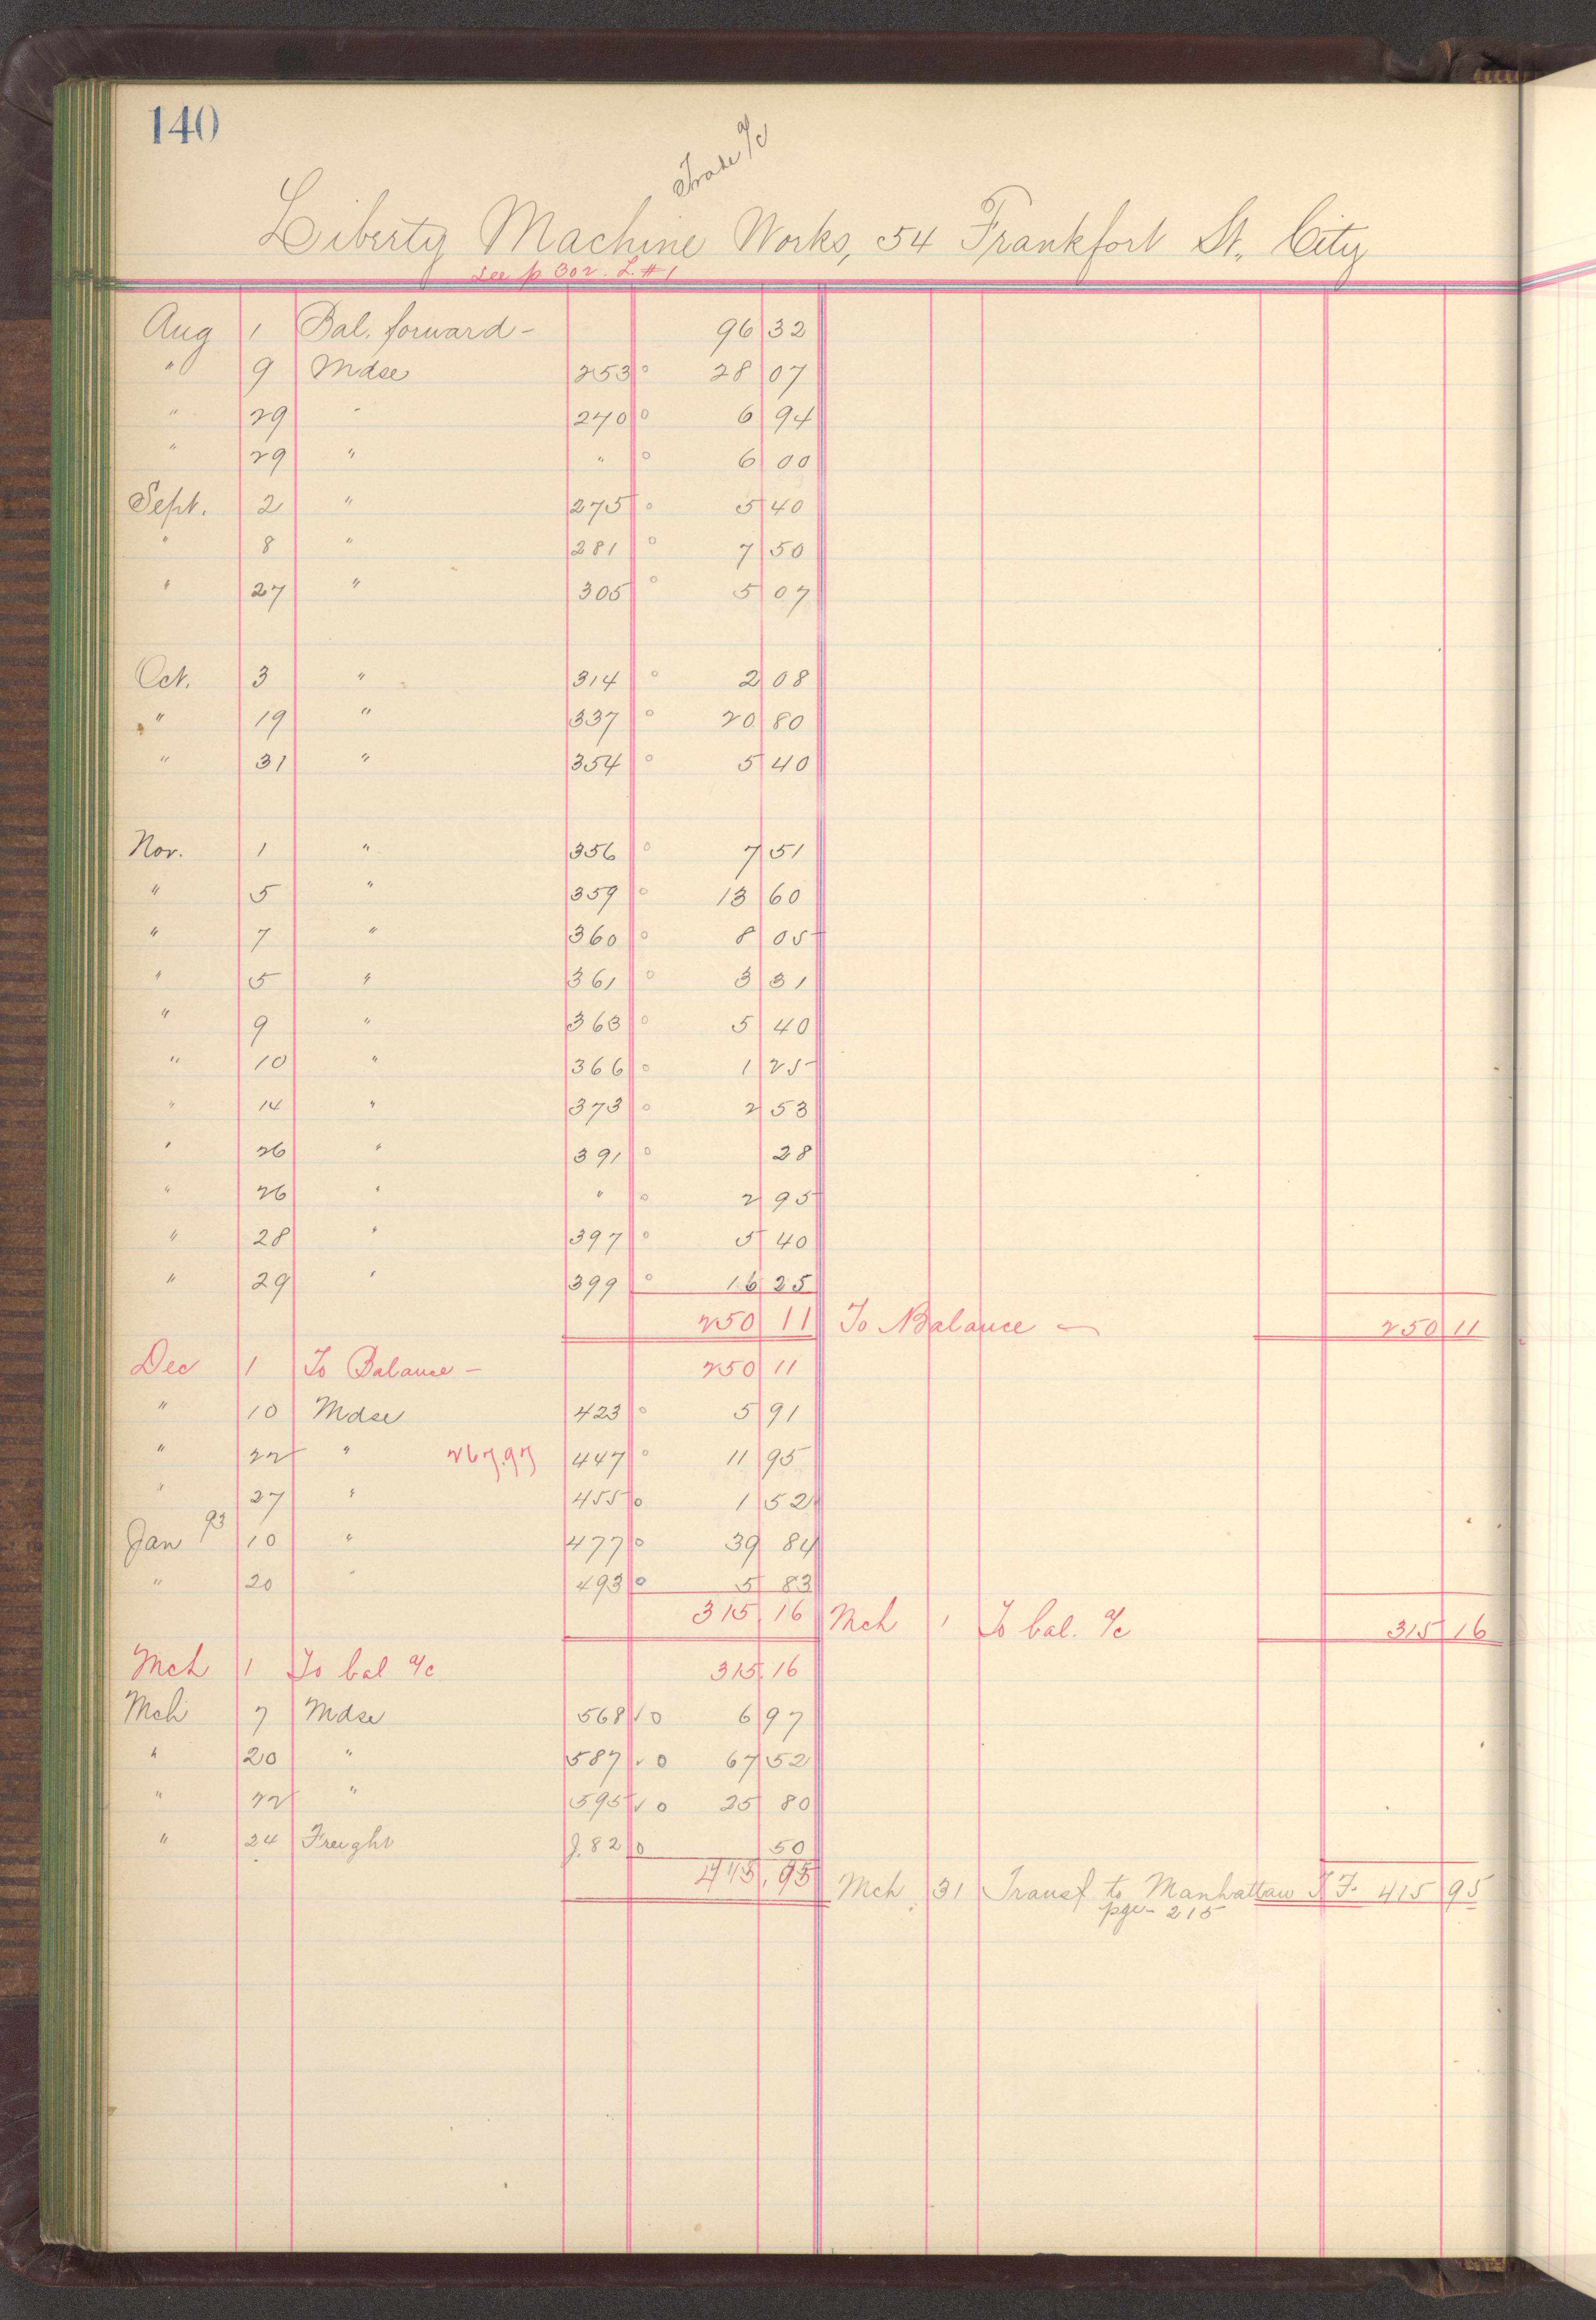 140
Trade a/c
Liberty Machine Works, 54 Frankfort St. City
See p 302. L. #1
Aug 1 Bal. forward - 96 32
" 9 Mdse 253 o 28 07
" 29 " 270 o 6 94
" 29 " " o 6 00
Sept. 2 " 275 o 5 40
" 8 " 281 o 7 50
" 27 " 305 o 5 07
Oct. 3 " 314 o 2 08
" 19 " 337 o 20 80
" 31 " 354 o 5 40
Nov. 1 " 356 o 7 51
" 5 " 359 o 13 60
" 7 " 360 o 8 05
" 5 " 361 o 3 31
" 9 " 363 o 5 40
" 10 " 366 o 1 25
" 14 " 373 o 2 53
" 26 " 391 o 28
" 26 " " o 2 95
" 28 " 397 o 5 40
" 29 " 399 o 16 25
250 11 To Balance - 250 11
Dec 1 To Balance - 250 11
" 10 Mdse 423 o 5 91
" 22 " 267.97 447 o 11 95
" 27 " 455 o 1 52
Jan 93 10 " 477 o 39 84
" 20 " 493 o 5 83
315 16 Mch 1 To bal. a/c 315 16
Mch 1 To bal a/c 315.16
Mch 7 Mdse 568 ✓ o 6 97
" 20 " 587 ✓ o 67 52
" 22 " 595 ✓ o 25 80
" 24 Freight J. 82 o 50
415.95 Mch 31 Transf. to Manhattan T. F. 415 95
pge - 215